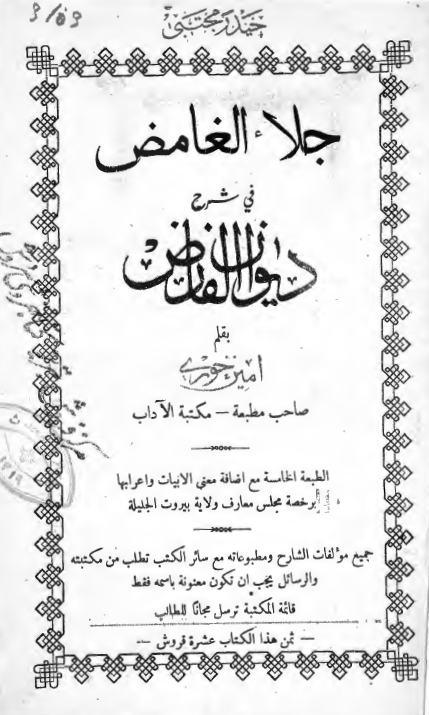 حيدر مجتبى
جلاء الغامض
في شرح
ديوان الفارض
بقلم
امين خوري
صاحب مطبعة – مكتبة الآداب
الطبعة الخامسة مع اضافة معنى الابيات واعرابها
برخصة مجلس معارف ولاية بيروت الجليلة
جميع مؤلفات الشارح ومطبوعاته مع سائر الكتب تطلب من مكتبته
والرسائل يجب ان تكون معنونة باسمه فقط
قائمة المكتبة ترسل مجانًا للطالب
— ثمن هذا الكتاب عشرة قروش —